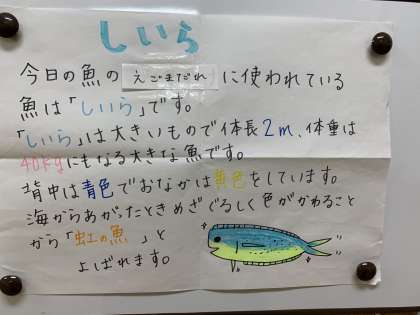 しいら
今日の魚の えごまだれ に使われている
魚は「しいら」です。
「しいら」は大きいもので体長2m、体重は
40kgにもなる大きな魚です。
背中は青色でおなかは黄色をしています。
海からあがったときめざぐるしく色がかわること
から「虹の魚」と
よばれます。